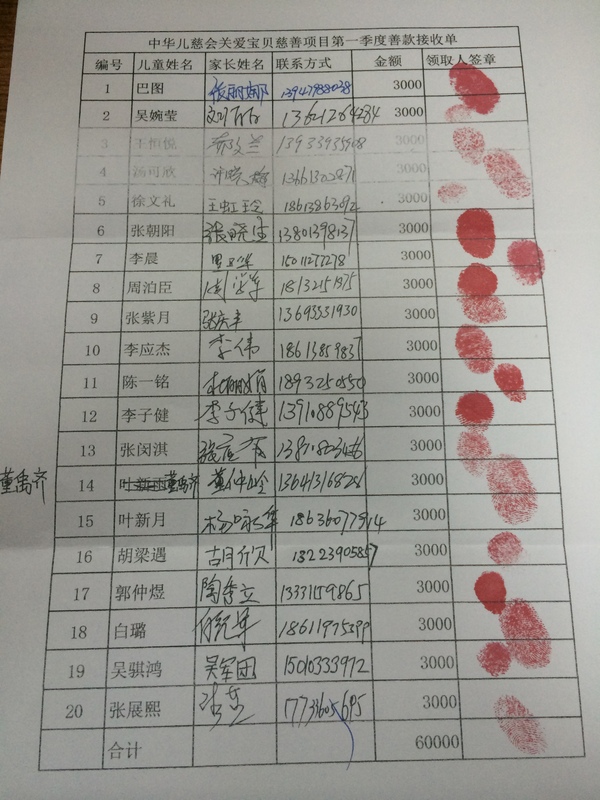 中华儿慈会关爱宝贝慈善项目第一季度善款接收单
编号 儿童姓名 家长姓名 联系方式 金额 领取人签章
1 巴图 张丽娜 13947988038 3000
2 吴婉莹 13621264284 3000
3 王恒悦 13933935908 3000
4 汤可欣 13661302871 3000
5 徐文礼 王虹玲 18613863692 3000
6 张朝阳 张晓生 13801398137 3000
7 李晨 15011277278 3000
8 周泊臣 周学军 18132151975 3000
9 张紫月 张庆丰 13693531930 3000
10 李应杰 李伟 18613859837 3000
11 陈一铭 杜丽娟 3000
12 李子健 李子健 3000
13 张闵淇 3000
董禹齐 14 董禹齐 董仲岭 3000
15 叶新月 杨咏华 18636077914 3000
16 胡梁遇 胡欣 18223905857 3000
17 郭仲煜 陶秀立 13331159865 3000
18 白璐 18611975399 3000
19 吴骐鸿 吴军团 15010333972 3000
20 张展熙 17733605695 3000
合计 60000